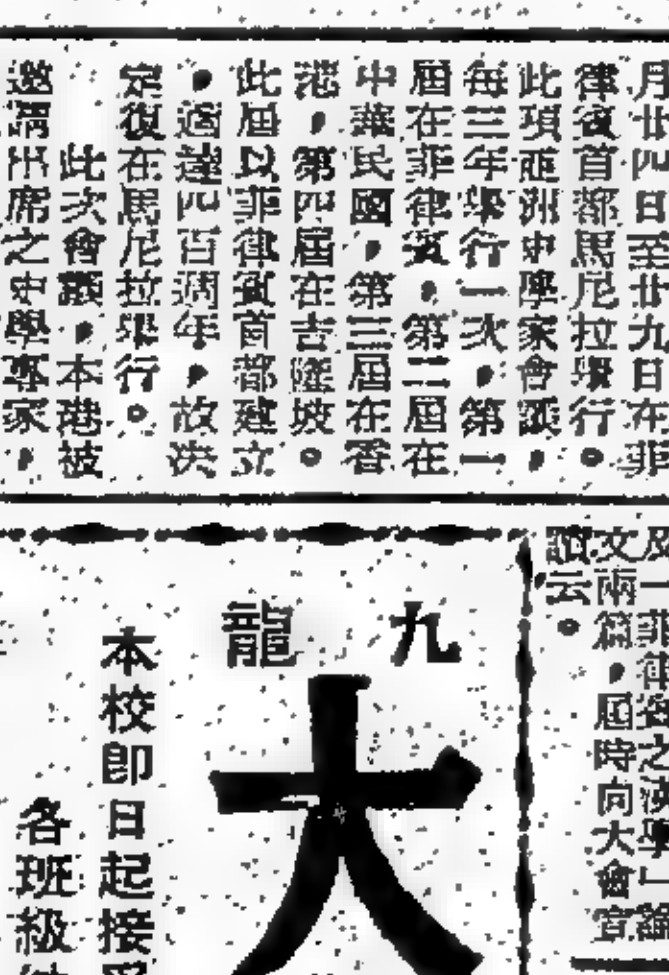 月廿四日至廿九日在菲
律賓首都馬尼拉舉行。
此項亞洲史學家會議，
每三年舉行一次，第一
屆在菲律賓，第二屆在
中華民國，第三屆在香
港，第四屆在吉隆坡。
此屆以菲律賓首都建立
，適達四百週年，故決
定復在馬尼拉舉行。
此次會議，本港被
邀請出席之史學專家，
及「菲律賓之漢學」論
文兩篇，屆時向大會宣
讀云。
九龍
大
本校即日起接受
各班級